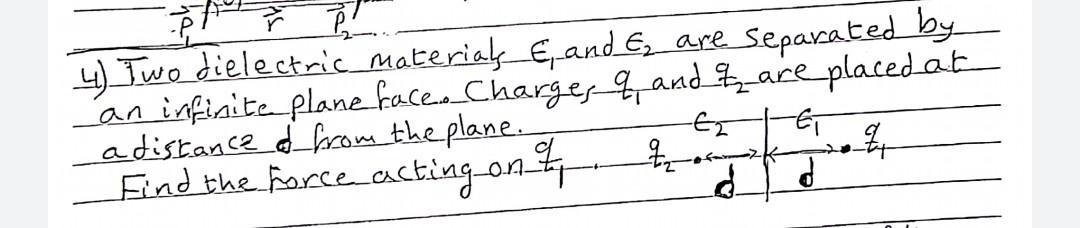 4) Two dielectric materials ϵ₁ and ϵ₂ are separated by
an infinite plane face. Charges q₁ and q₂ are placed at
a distance d from the plane.
Find the force acting on q₁.
ϵ₂ ϵ₁
q₂ q₁
d d